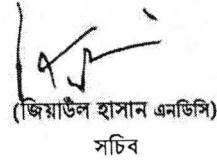 (জিয়াউল হাসান এনডিসি)
সচিব